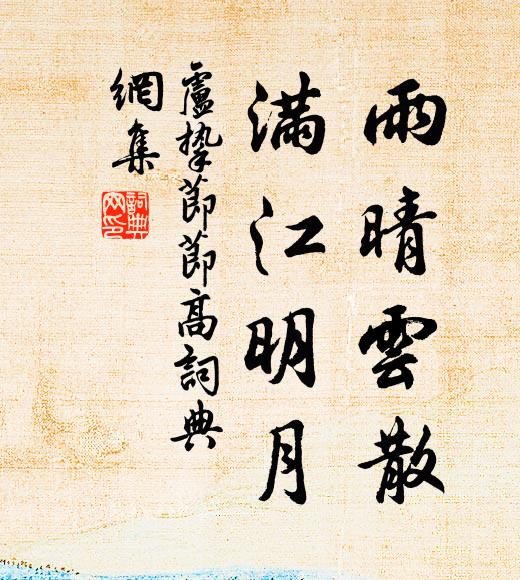 雨晴雲散
滿江明月
盧摯節節高詞典
網集
詞典
网印